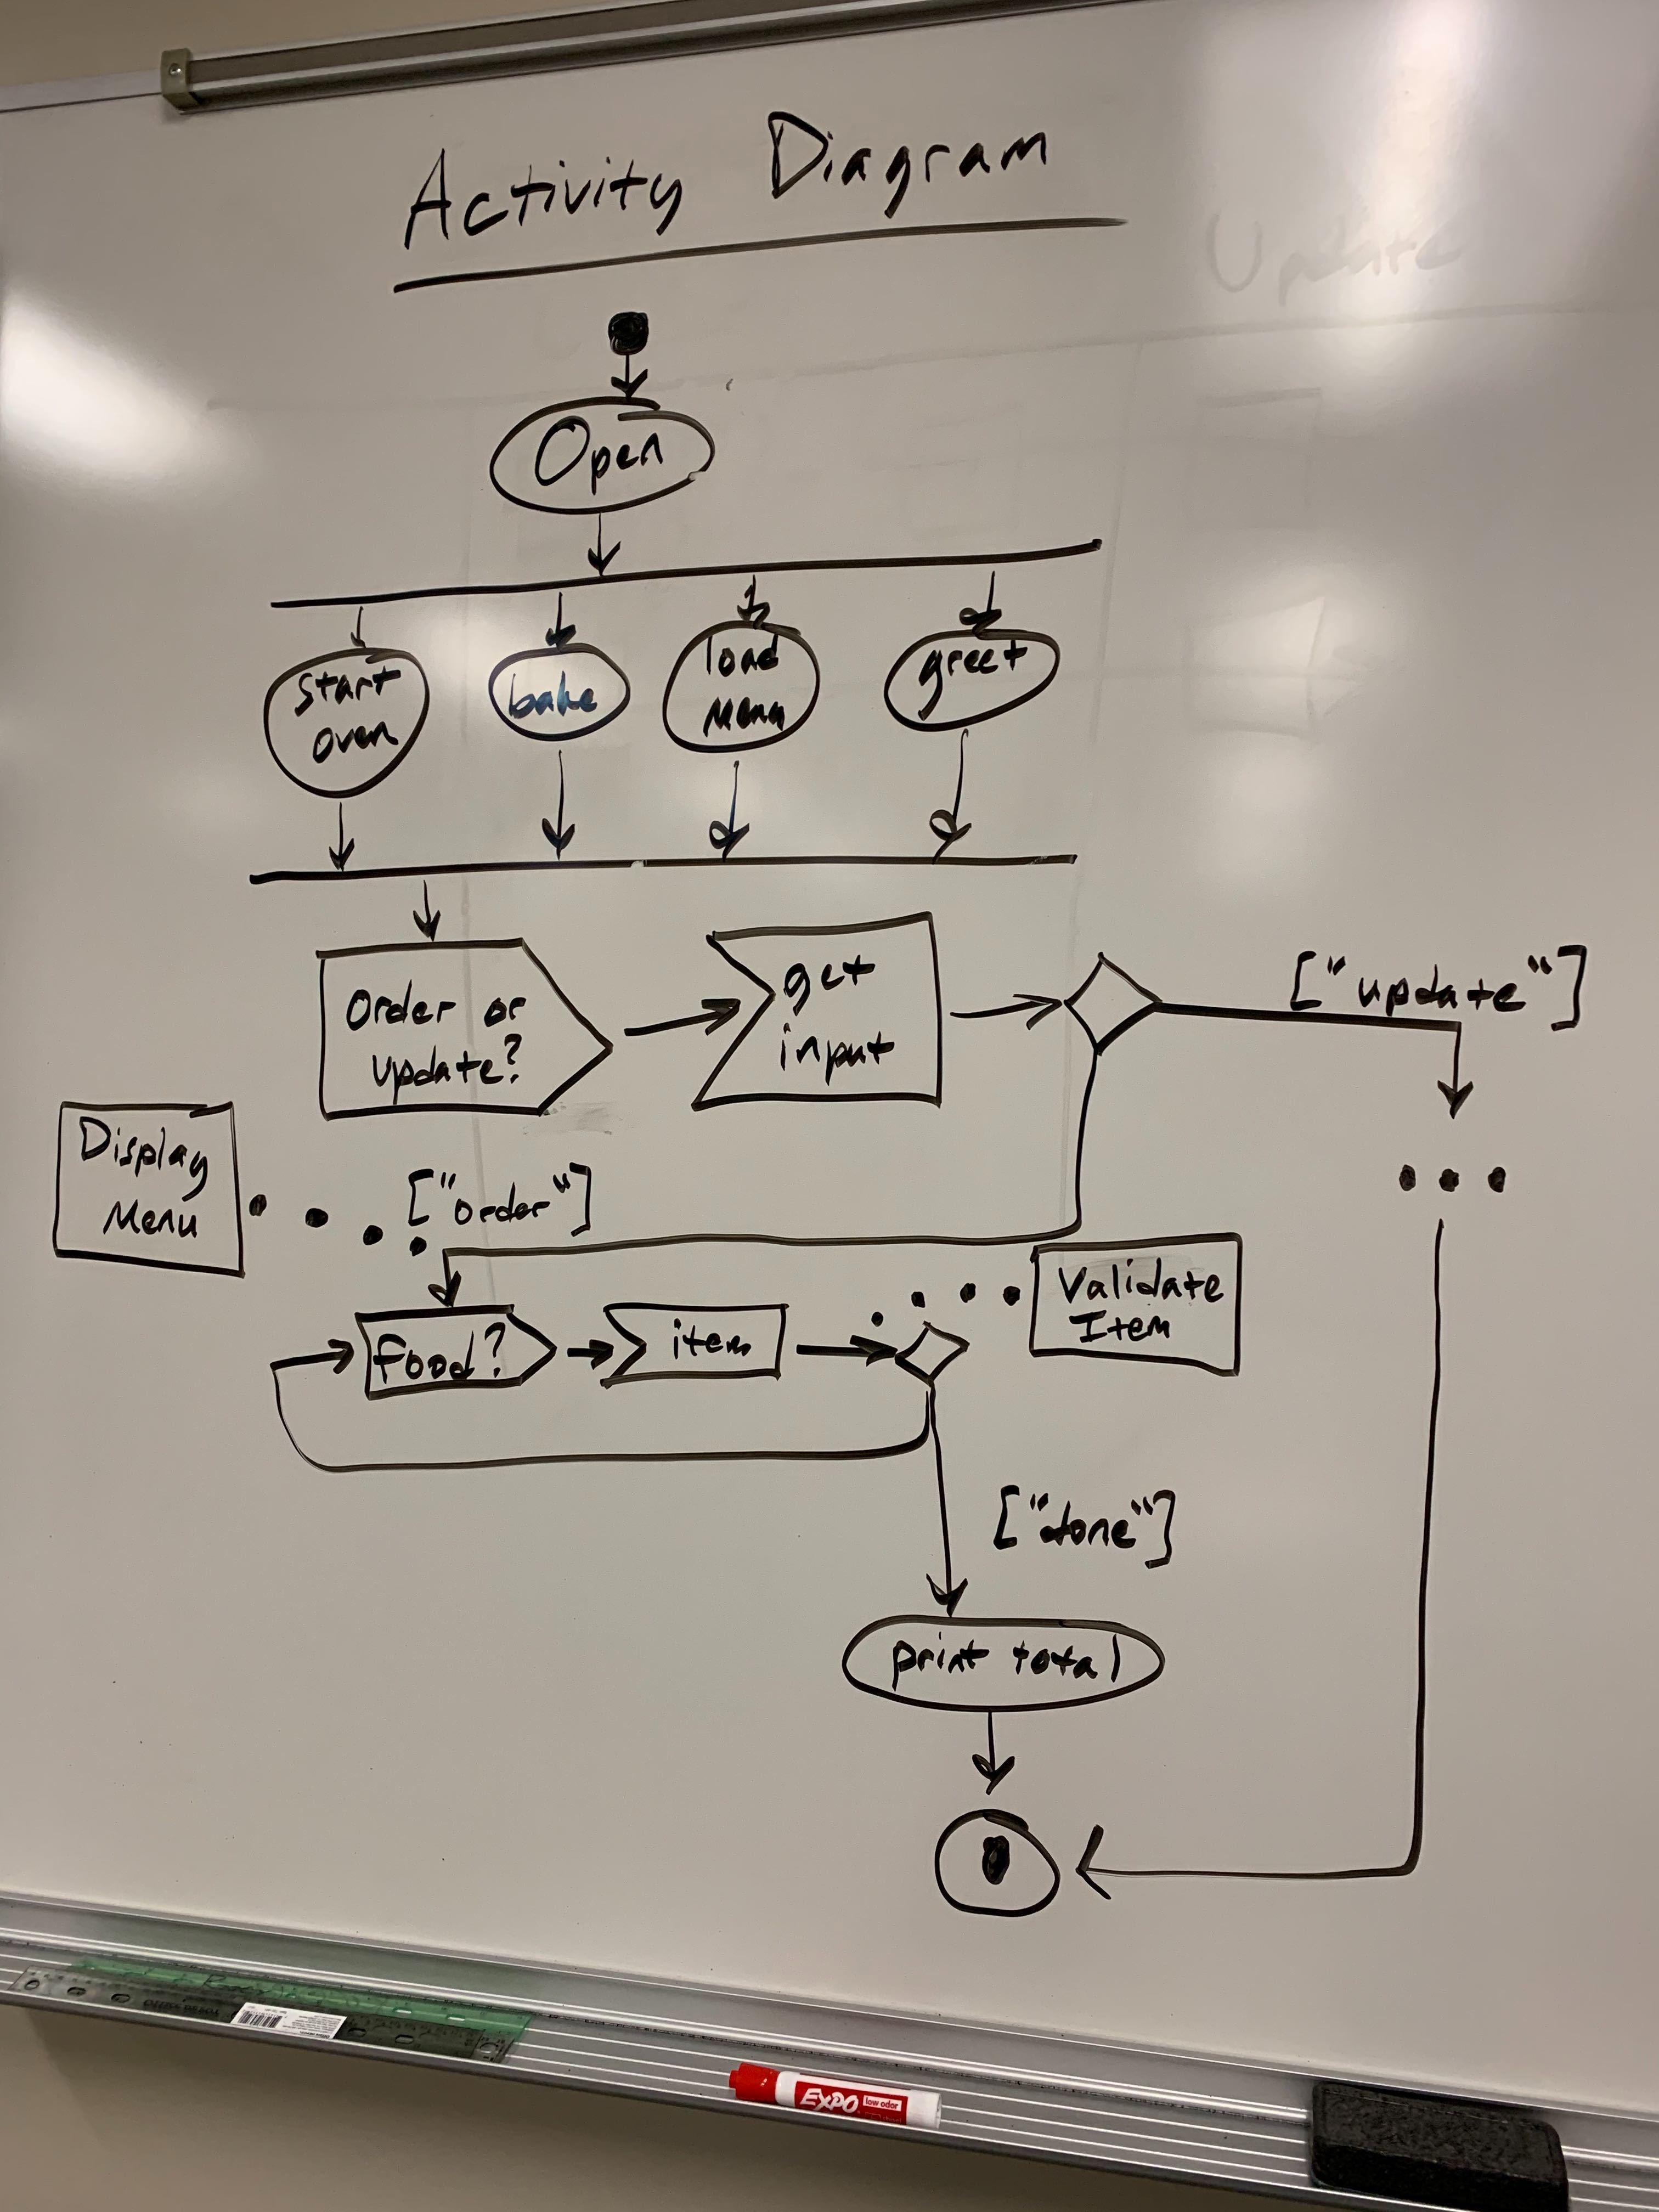 Activity Diagram
Update
Open
start
oven
bake
load
menu
greet
Order or
update?
get
input
["update"]
Display
Menu
["order"]
Validate
Item
food?
item
["done"]
print total
EXPO low odor